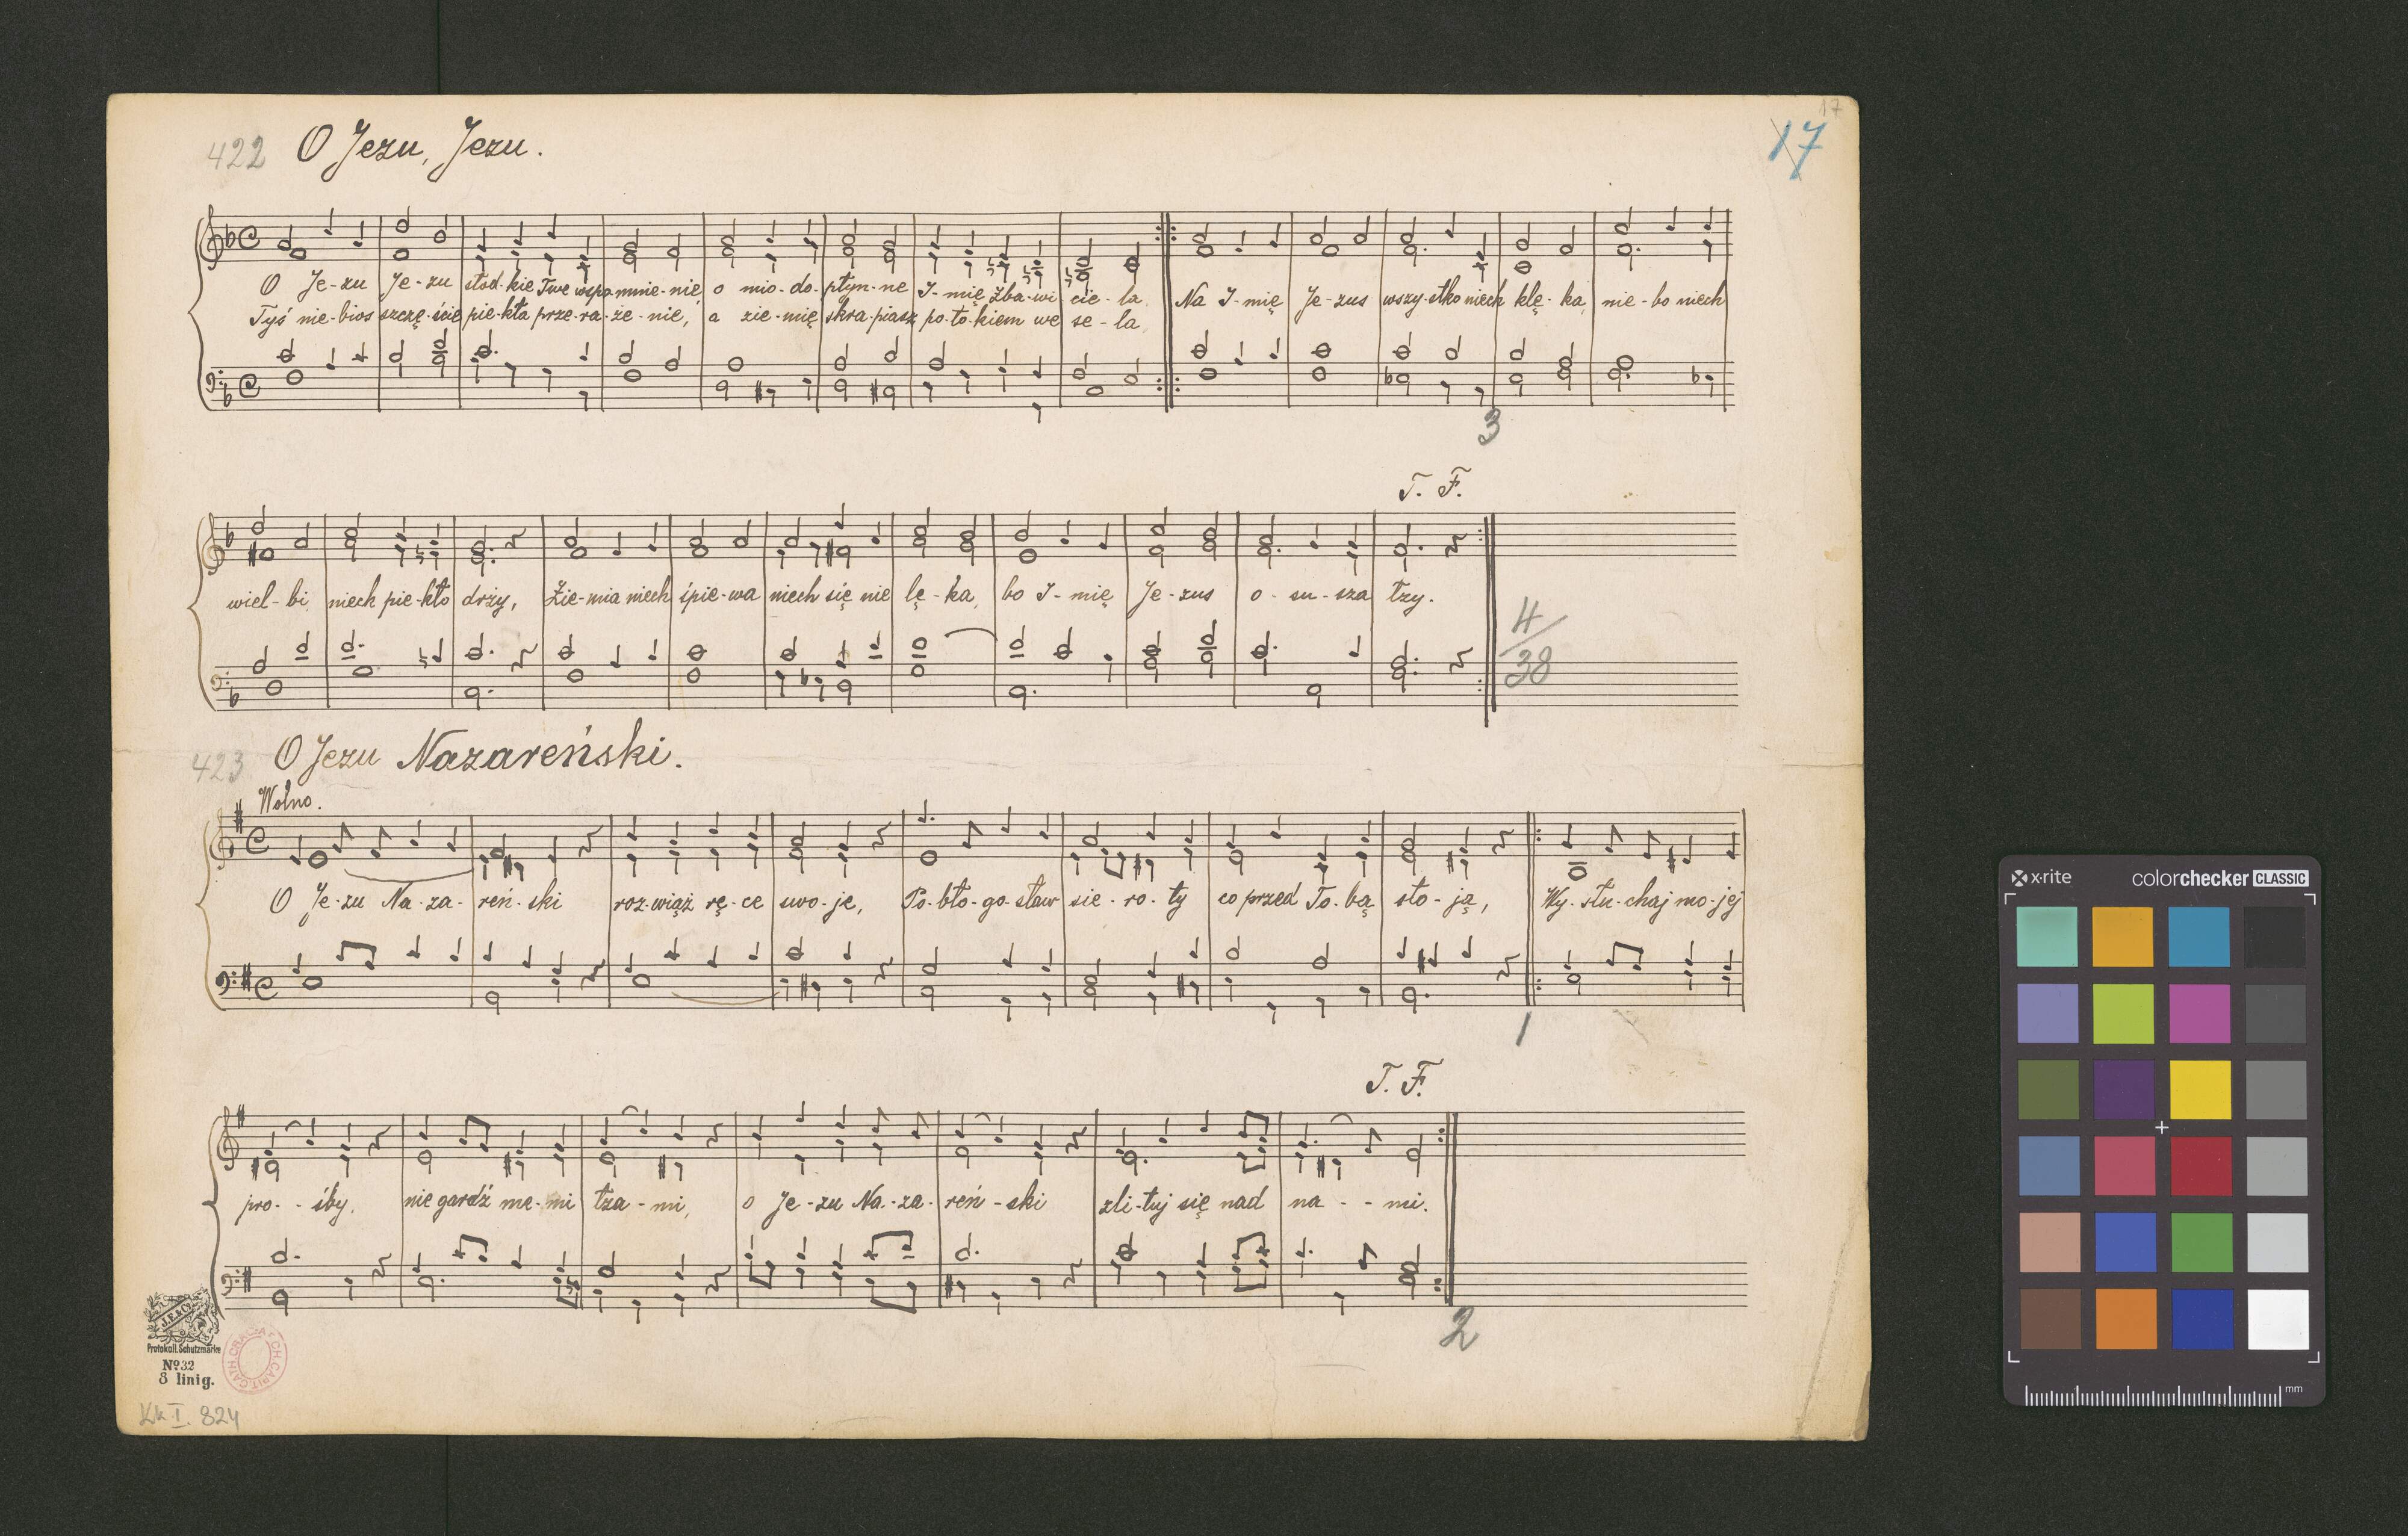 17
17
422 O Jezu, Jezu.
O Je-zu Je-zu słod-kie Twe wspo-mnie-nie, o mio-do-płyn-ne I-mię Zba-wi cie-la. Na I-mię Je-zus wszy-stko niech klę-ka, nie-bo niech
Tyś nie-bios szczę-ście pie-kła prze-ra-że-nie, a zie-mię skra-piasz po-to-kiem we se-la
3
T. F.
wiel-bi, niech pie-kło drży, Zie-mia niech śpie-wa niech się nie lę-ka, bo I-mię Je-zus o-su-sza łzy.
4/38
423 O Jezu Nazareński.
Wolno.
O Je-zu Na-za-reń-ski roz-wiąż rę-ce swo-je, Po-bło-go-sław sie-ro-ty co przed To-bą sto-ją, Wy-słu-chaj mo-jej
1
T. F.
pro--śby, nie gardź me-mi łza-mi, o Je-zu Na-za-reń-ski zli-tuj się nad na--mi.
2
J.E.&Co.
Protokoll. Schutzmarke
No 32
8 linig.
Kk I. 824
x-rite
colorchecker CLASSIC
mm